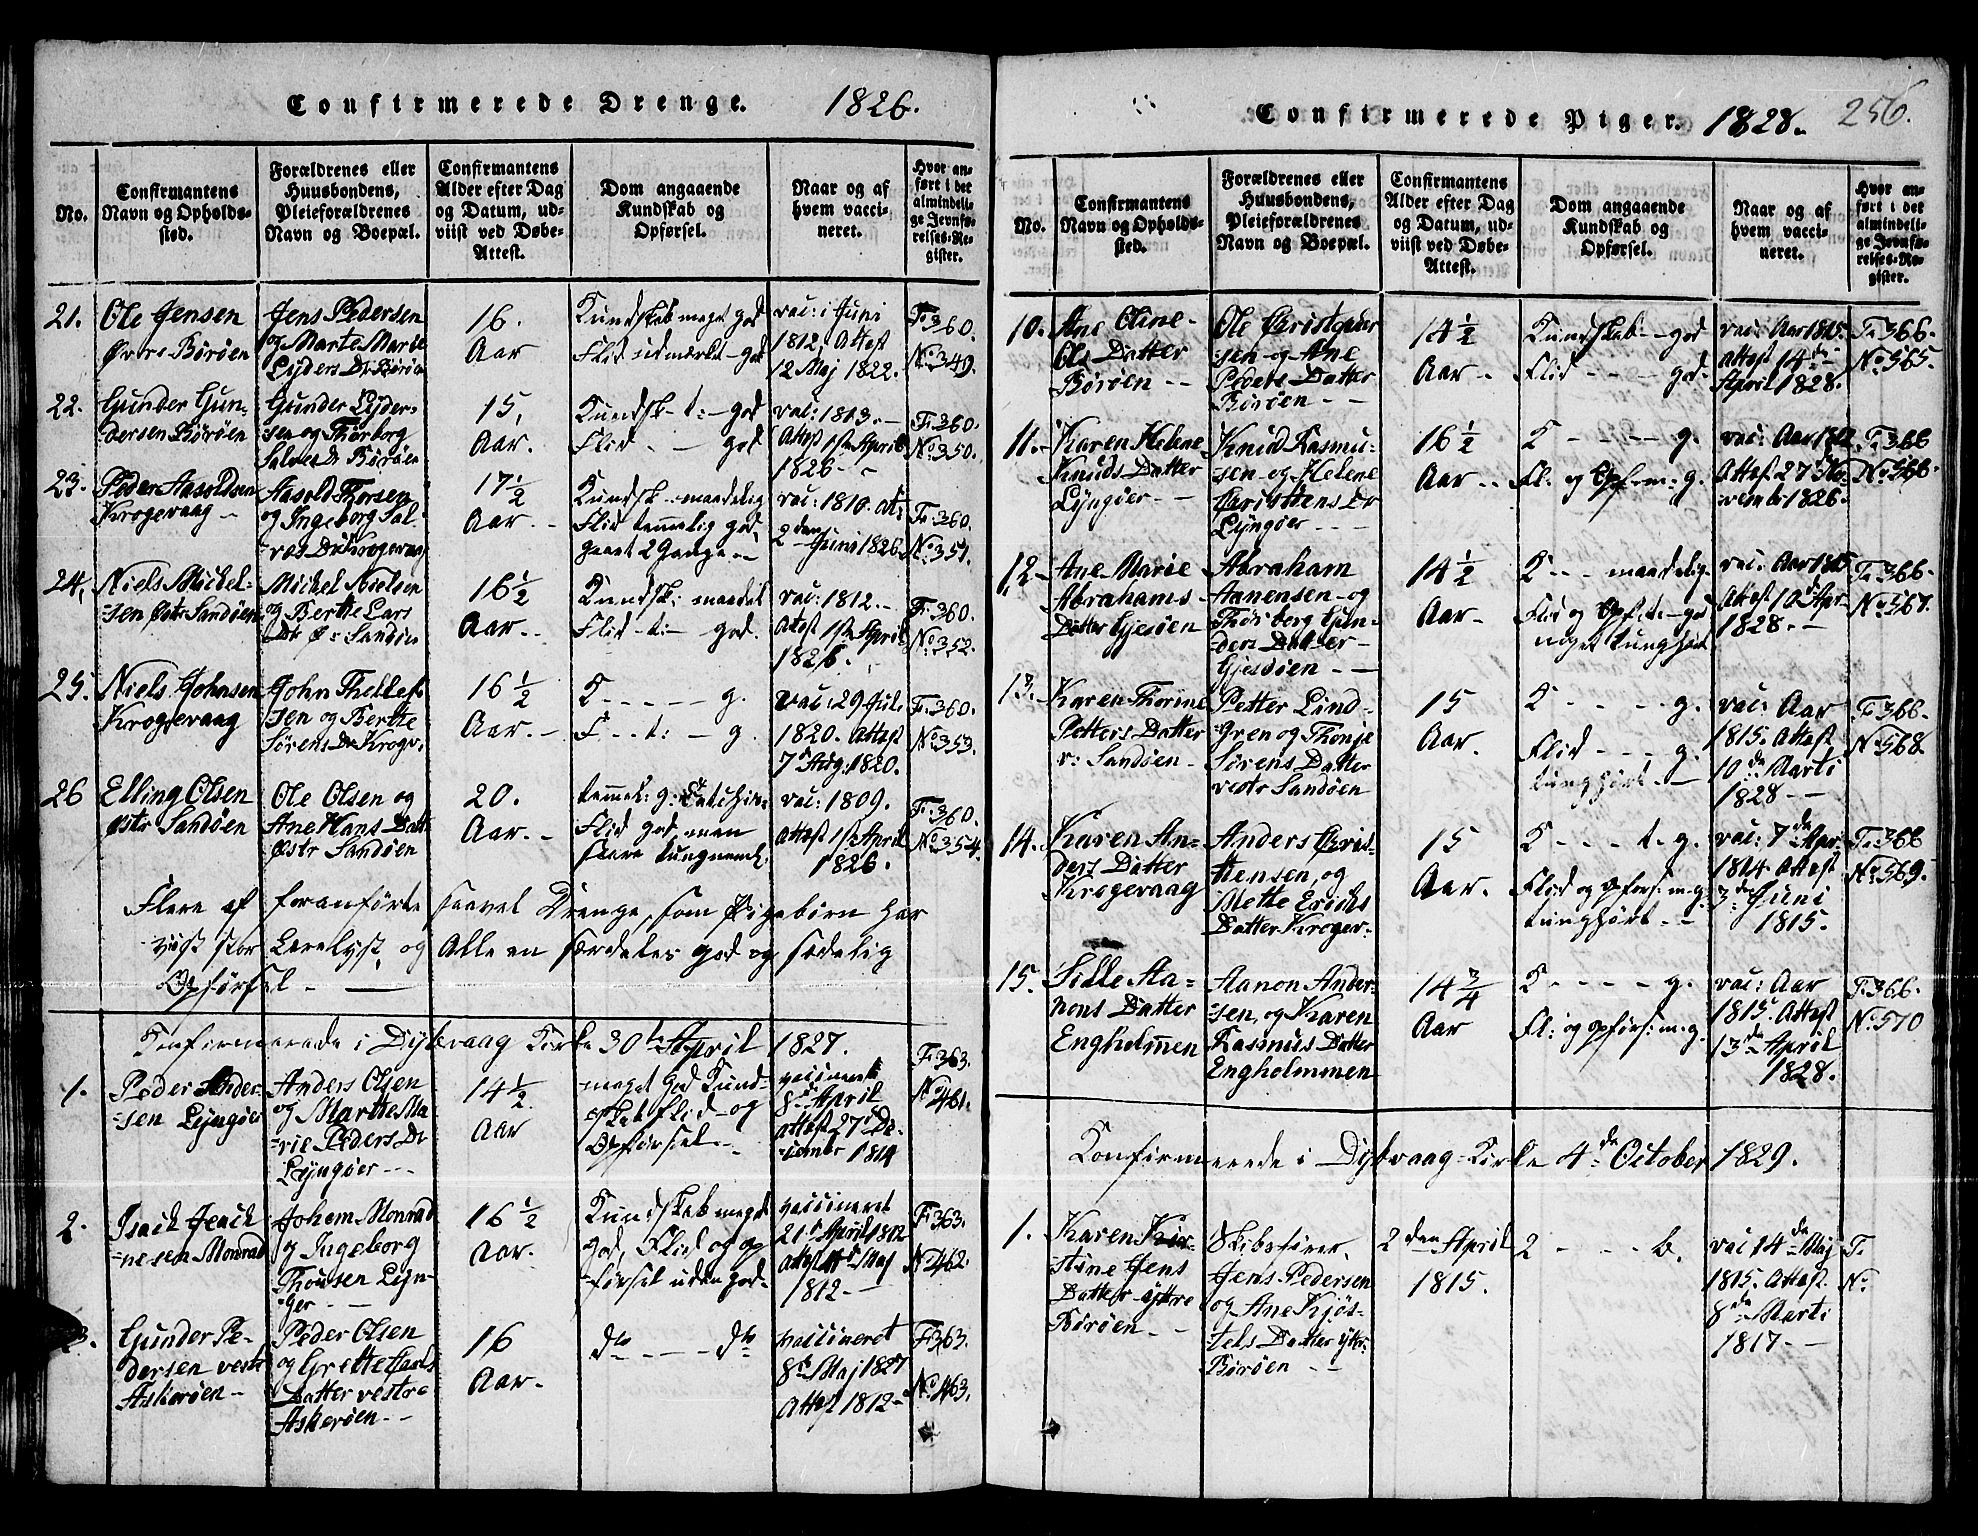 Confirmerede Drenge. 1826.
No.
Confirmantens
Navn og Opholds-
sted.
Forældrenes eller
Huusbondens,
Pleieforældrenes
Navn og Boepæl.
Confirmantens
Alder efter Dag
og Datum, ud-
viist ved Døbe-
Attest.
Dom angaaende
Kundskab og
Opførsel.
Naar og af
hvem vacci-
neret.
Hvor an-
ført i det
almindeli-
ge Jevnfø-
relses-Re-
gister.
21.
Ole Jensen
Øvre Böröen
Jens Pedersen
og Marte Marie
Lyders Dr Böröen
16.
Aar
Kundskab meget god
Flid udmærket god
vac: i Juni
1812, Attest
12 Maj 1822.
F: 360.
No 349.
22.
Gunder Gun-
dersen Böröen
Gunder Lyder-
sen og Thorborg
Salves Dr Böröen
15,
Aar.
Kundsk- t: - god
Flid - - god
vac: 1813. -
Attest 1ste April
1826 - -
F: 360.
No 350.
23.
Peder Aasoldsen
Krogevaag -
Aasold Thorsen
og Ingeborg Sal-
ves Dr Krogevaag
17 1/2
Aar. -
Kundsk: maadelig
Flid temmelig god,
gaaet 2 Gange -
vac: 1810. at:
2den Juni 1826.
F: 360.
No 351.
24,
Niels Mickel-
sen østr Sandöen
Mickel Nielsen
og Berthe Lars
Dr Ø: Sandöen
16 1/2
Aar. -
Kundsk: maadel
Flid - t: - god.
vac: 1812. -
Attest 1ste April
1826.
F: 360.
No 352.
25.
Niels Johnsen
Krogevaag
John Thellef-
sen og Berthe
Sörens Dr Krogev.
16 1/2
Aar. -
K - - - - - g.
F - - t: - g.
vac: 29 Jul:
1820. Attest
7 Aug. 1820.
F: 360.
No 353.
26
Elling Olsen
østr Sandöen
Ole Olsen og
Ane Hans Datt
Østr Sandöen
20.
Aar. -
Flid god, men
saare tungnem.
vac: 1809.
Attest 1ste April
1826.
F: 360.
No 354.
Flere af foranförte saavel Drenge, som Pigebörn har
viist stor Lærelyst, og Alle en særdeles god og sædelig
Opförsel. -
Confirmerede i Dybvaag Kirke 30te April 1827.
1.
Peder Ander-
sen Lyngöer
Anders Olsen
og Marthe Ma-
rie Peders Dr
Lyngöer - -
14 1/2
Aar
meget god Kund-
skab Flid - og
Opförsel. -
vaccineret
8 April
attest 27 De-
cembr 1814
F: 363.
No 461.
2.
Isach Joach
-nesen Monrad
Johem Monrad
og Ingeborg
Thomsen Lyn-
ger - -
16 1/2
Aar.
Kundskab meget
god, Flid og op
försel uden god.
vaccineret
21 April 1802
attest Maj
1812. -
F: 363.
No 462.
3.
Gunder Pe-
dersen vestr
Askeröen -
Peder Olsen
og Grethe Carls
Datter vestre
Askeröen - -
16
Aar.
do - - - do
vaccineret
8 Maj 1827
Attest 1812 -
F: 363.
No 463.
Confirmerede Piger. 1828. 256.
No.
Confirmantens
Navn og Opholds-
sted.
Forældrenes eller
Huusbondens,
Pleieforældrenes
Navn og Boepæl.
Confirmantens
Alder efter Dag
og Datum, ud-
viist ved Døbe-
Attest.
Dom angaaende
Kundskab og
Opførsel.
Naar og af
hvem vacci-
neret.
Hvor an-
ført i det
almindeli-
ge Jevnfø-
relses-Re-
gister.
10.
Ane Oline -
Ols Datter
Böröen - -
Ole Christopher
sen og Ane
Peders Datter
Böröen - -
14 1/2
Aar - -
Kundskab: - god
Flid - - - god.
vac: Aar 1815.
Attest 14de
April 1828.
F: 366.
No 565.
11.
Karen Helene
Knuds Datter
Lyngöer - -
Knud Rasmu-
sen og Helene
Christens Dr
Lyngöer - - -
16 1/2
Aar - -
K - - - - g.
Fl: og Opf: m: g.
vac: Aar 1812
Attest 27 No-
vembr 1826.
F: 366
No 566.
12.
Ane Marie
Abrahams -
Datter Gjesöen
Abraham
Aanensen og
Thorborg Gun-
ders Datter -
Gjesöen - -
14 1/2
Aar -
K - - - maadelig.
Flid og Opf: t: - god
noget tunghört
vac: Aar 1815
Attest 10 Apr
1828. - -
F: 366.
No 567.
13.
Karen Thorine
Petters Datter
v: Sandöen -
Petter Lind-
gren og Thonje
Sörens Datter
vestr Sandöen
15
Aar.
K - - - - g.
Flid - - - g.
tunghört. -
vac: Aar
1815. Attest
10de Marti
1828 - -
F: 366.
No 568.
14.
Karen An-
ders Datter
Krogevaag
Anders Chris-
tensen, og
Mette Erichs
Datter Kroger.
15
Aar.
K - - - t. g.
Flid og opförs: m: g.
tunghört - -
vac: 7de Apr:
1814 Attest
3de Juni
1815.
F: 366
No 569.
15.
Sille Aa-
nons Datter
Engholmen
Aanon Ander-
sen, og Karen
Rasmus Datter
Engholmmen
14 3/4
Aar
K - - - - g.
Fl: og opförs: m: g.
vac: Aar
1815. Attest
13de April
1828.
F: 366.
No 570
Konfirmerede i Dybvaag Kirke 4de October 1829.
1.
Karen Kir-
stine Jens
Datter yttre
Böröen - -
Skibsförer.
Jens Pedersen
og Ane Kjös-
tels Datter ytr.
Böröen - -
2den April
1815.
vac 14de Maj
1815. Attest.
8de Marti
1817. -
F:
No